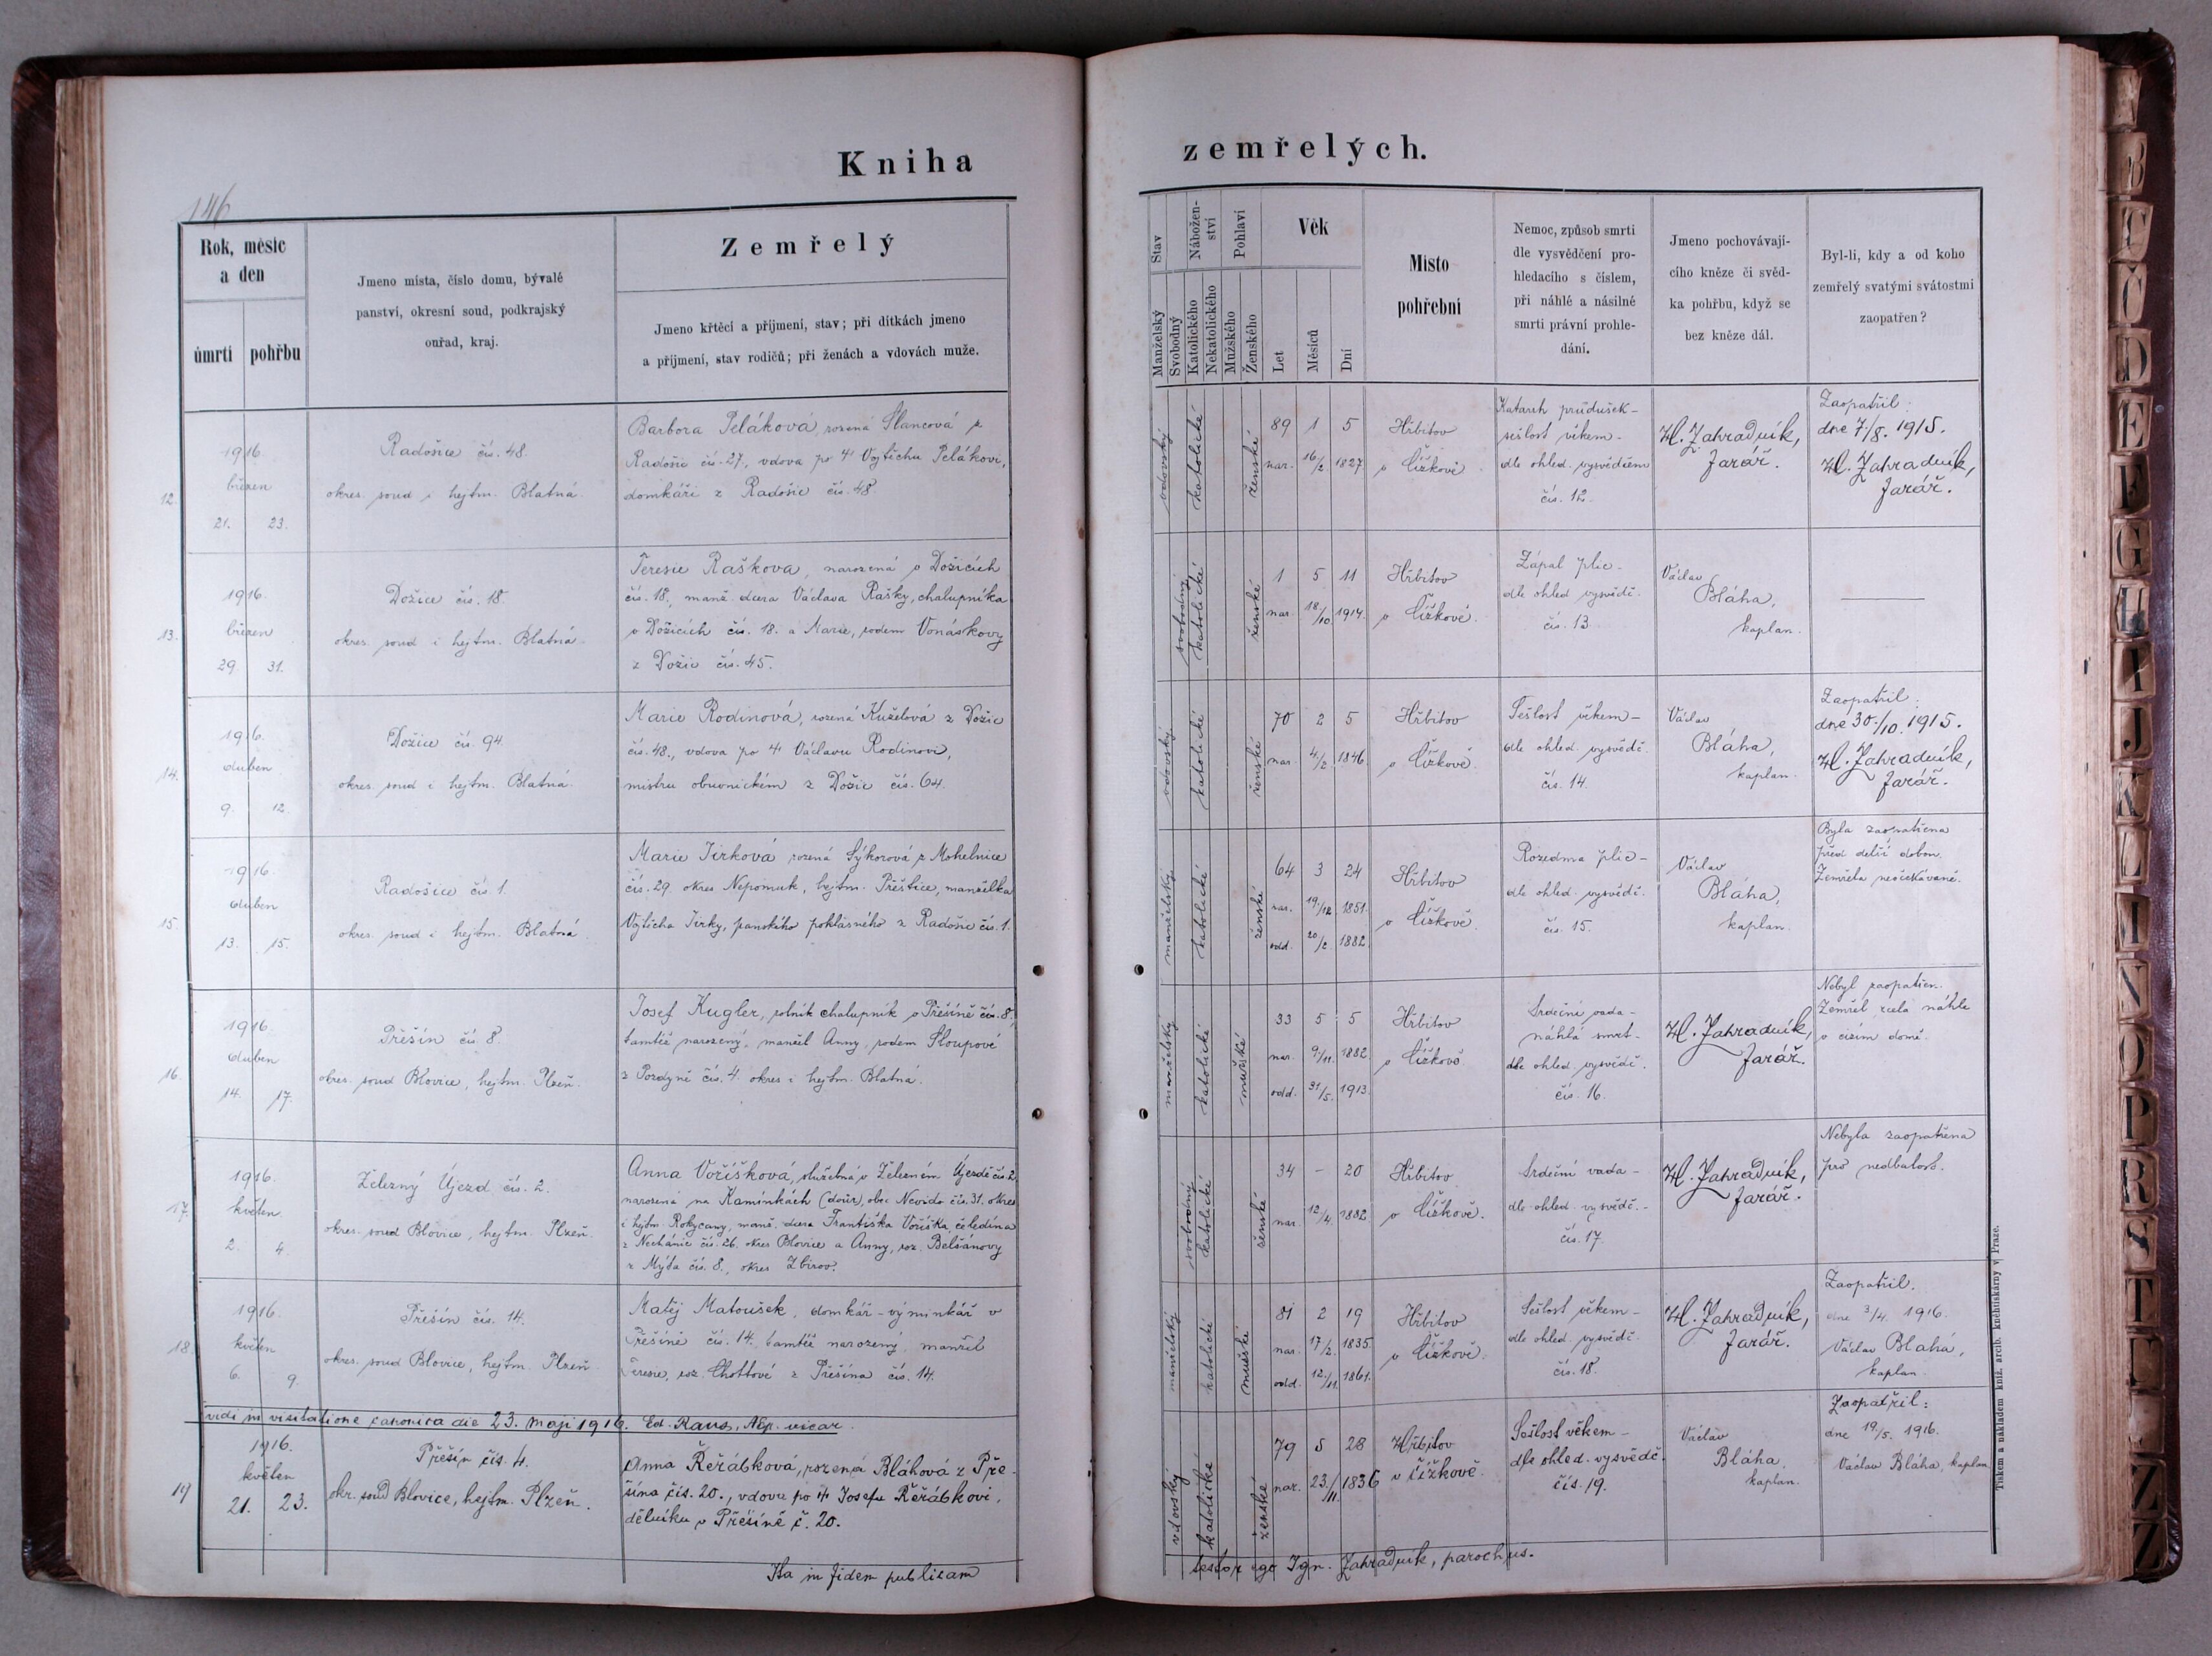 Kniha zemřelých.
146
Rok, měsíc
a den
úmrtí
pohřbu
Jmeno místa, číslo domu, bývalé
panství, okresní soud, podkrajský
ouřad, kraj.
Zemřelý
Jmeno křtěcí a příjmení, stav; při dítkách jmeno
a příjmení, stav rodičů; při ženách a vdovách muže.
Stav
Manželský
Svobodný
Nábožen-
ství
Katolického
Nekatolického
Pohlaví
Mužského
Ženského
Věk
Let
Měsíců
Dní
Místo
pohřební
Nemoc, způsob smrti
dle vysvědčení pro-
hledacího s číslem,
při náhlé a násilné
smrti právní prohle-
dání.
Jmeno pochovávají-
cího kněze či svěd-
ka pohřbu, když se
bez kněze dál.
Byl-li, kdy a od koho
zemřelý svatými svátostmi
zaopatřen?
12.
1916.
březen
21. 23.
Radošice čís. 48.
okres. soud i hejtm. Blatná.
Barbora Peláková, rozená Slancová z
Radošic čís. 27., vdova po † Vojtěchu Pelákovi,
domkáři z Radošic čís. 48.
vdovský
katolické
ženské
89 1 5
nar. 16/2. 1827.
Hřbitov
v Čížkově
Katarrh průdušek-
sešlost věkem-
dle ohled. vysvědčení
čís. 12.
H. Zahradník,
farář.
Zaopatřil:
dne 7/8. 1915.
H. Zahradník,
farář.
13.
1916.
březen
29. 31.
Dožice čís. 18.
okres. soud i hejtm. Blatná.
Teresie Raškova, narozená v Dožicích
čís. 18., manž. dcera Václava Rašky, chalupníka
v Dožicích čís. 18. a Marie, rodem Vonáskovy
z Dožic čís. 45.
svobodný
katolické
ženské
1 5 11
nar. 18/10. 1914.
Hřbitov
v Čížkově.
Zápal plic-
dle ohled. vysvědč.
čís. 13.
Václav
Bláha,
kaplan.
14.
1916.
duben
9. 12.
Dožice čís. 94.
okres. soud i hejtm. Blatná.
Marie Rodinová, rozená Kuželová z Dožic
čís. 48., vdova po † Václavu Rodinovi,
mistru obuvnickém z Dožic čís. 64.
vdovský
katolické
ženské
70 2 5
nar. 4/2. 1846
Hřbitov
v Čížkově.
Sešlost věkem-
dle ohled. vysvědč.
čís. 14.
Václav
Bláha,
kaplan.
Zaopatřil:
dne 30./10. 1915.
H. Zahradník,
farář.
15.
1916.
duben
13. 15.
Radošice čís. 1.
okres. soud i hejtm. Blatná.
Marie Jirková rozená Sýkorová z Mohelnice
čís. 29. okres Nepomuk, hejtm. Přeštice, manželka
Vojtěcha Jirky, panského poklasného z Radošic čís. 1.
manželský
katolické
ženské
64 3 24
nar. 19./12. 1851.
odd. 20/2. 1882.
Hřbitov
v Čížkově.
Rozedma plic-
dle ohled. vysvědč.
čís. 15.
Václav
Bláha,
kaplan.
Byla zaopatřena
před delší dobou.
Zemřela neočekávaně.
16.
1916.
duben
14. 17.
Přešín čís. 8.
okres. soud Blovice, hejtm. Plzeň.
Josef Kugler, rolník chalupník v Přešíně čís. 8.,
tamtéž narozený, manžel Anny, rodem Sloupové
z Pozdyně čís. 4. okres i hejtm. Blatná.
manželský
katolické
mužské
33 5 5
nar. 9/11. 1882.
odd. 31/5. 1913.
Hřbitov
v Čížkově
Srdeční vada-
náhlá smrt-
dle ohled. vysvědč.
čís. 16.
H. Zahradník,
farář.
Nebyl zaopatřen.
Zemřel zcela náhle
v cizím domě.
17.
1916.
květen
2. 4.
Železný Újezd čís. 2.
okres. soud Blovice, hejtm. Plzeň.
Anna Voříšková, služebná v Železném Újezdě čís. 2.
narozená na Kamínkách (dvůr), obec Nevido čís. 31. okres
i hejtm. Rokycany, manž. dcera Františka Voříška, čeledína
z Nechánic čís. 26. okres Blovice a Anny, roz. Belšánovy
z Mýta čís. 8., okres Zbirov.
svobodný
katolické
ženské
34 - 20
nar. 12/4. 1882
Hřbitov
v Čížkově.
Srdeční vada-
dle ohled. vysvědč.-
čís. 17.
H. Zahradník,
farář.
Nebyla zaopatřena
pro nedbalost.
18.
1916.
květen
6. 9.
Přešín čís. 14.
okres. soud Blovice, hejtm. Plzeň.
Matěj Matoušek, domkář-výminkář v
Přešíně čís. 14., tamtéž narozený, manžel
Teresie, roz. Chottové z Přešína čís. 14.
manželský
katolické
mužské
81 2 19
nar. 17/2. 1835.
odd. 12./11. 1861.
Hřbitov
v Čížkově.
Sešlost věkem-
dle ohled. vysvědč.
čís. 18.
H. Zahradník,
farář.
Zaopatřil.
dne 3/4. 1916.
Václav Bláha,
kaplan.
vidi in visitatione canonica die 23. Maji 1916. Ed. Raus, Nep. vicar.
19
1916.
květen
21. 23.
Přešín čís. 4.
okr. soud Blovice, hejtm. Plzeň.
Anna Řeřábková, rozená Bláhová z Pře-
šína čís. 20., vdova po † Josefu Řeřábkovi,
dělníku v Přešíně č. 20.
vdovský
katolické
ženské
79 5 28
nar. 23./11. 1836
Hřbitov
v Čížkově.
Sešlost věkem-
dle ohled. vysvědč.
čís. 19.
Václav
Bláha,
kaplan.
Zaopatřil:
dne 19/5. 1916.
Václav Bláha, kaplan
Ita in fidem publicam
testor ego Ign. Zahradník, parochus.
Tiskem a nákladem kníž. arcib. knihtiskárny v Praze.
B
C
Č
D
E
F
G
H
I
J
K
L
M
N
O
P
R
S
T
Z
Z